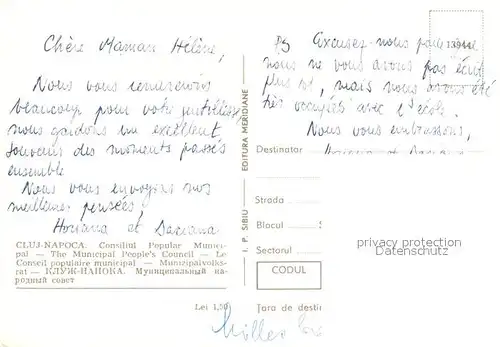 Chère Maman Hélène,
Nous vous remercions
beaucoup pour votre gentillesse
nous gardons un excellent
souvenir des moments passés
ensemble
Nous vous envoyons nos
meilleures pensées,
Horiana et Daciana
CLUJ-NAPOCA. Consiliul Popular Munici-
pal — The Municipal People's Council — Le
Conseil populaire municipal — Munizipalvolks-
rat — КЛУЖ-НАПОКА. Муниципальный на-
родный совет
Lei 1,50
I. P. SIBIU EDITURA MERIDIANE
PS Excusez-nous
nous ne vous avons pas écrit
plus tôt, mais nous avons été
très occupées avec l'école.
Nous vous embrassons,
Horiana et Daciana
Destinator
Strada
Blocul
Sectorul
CODUL
Țara de desti
privacy protection
Datenschutz